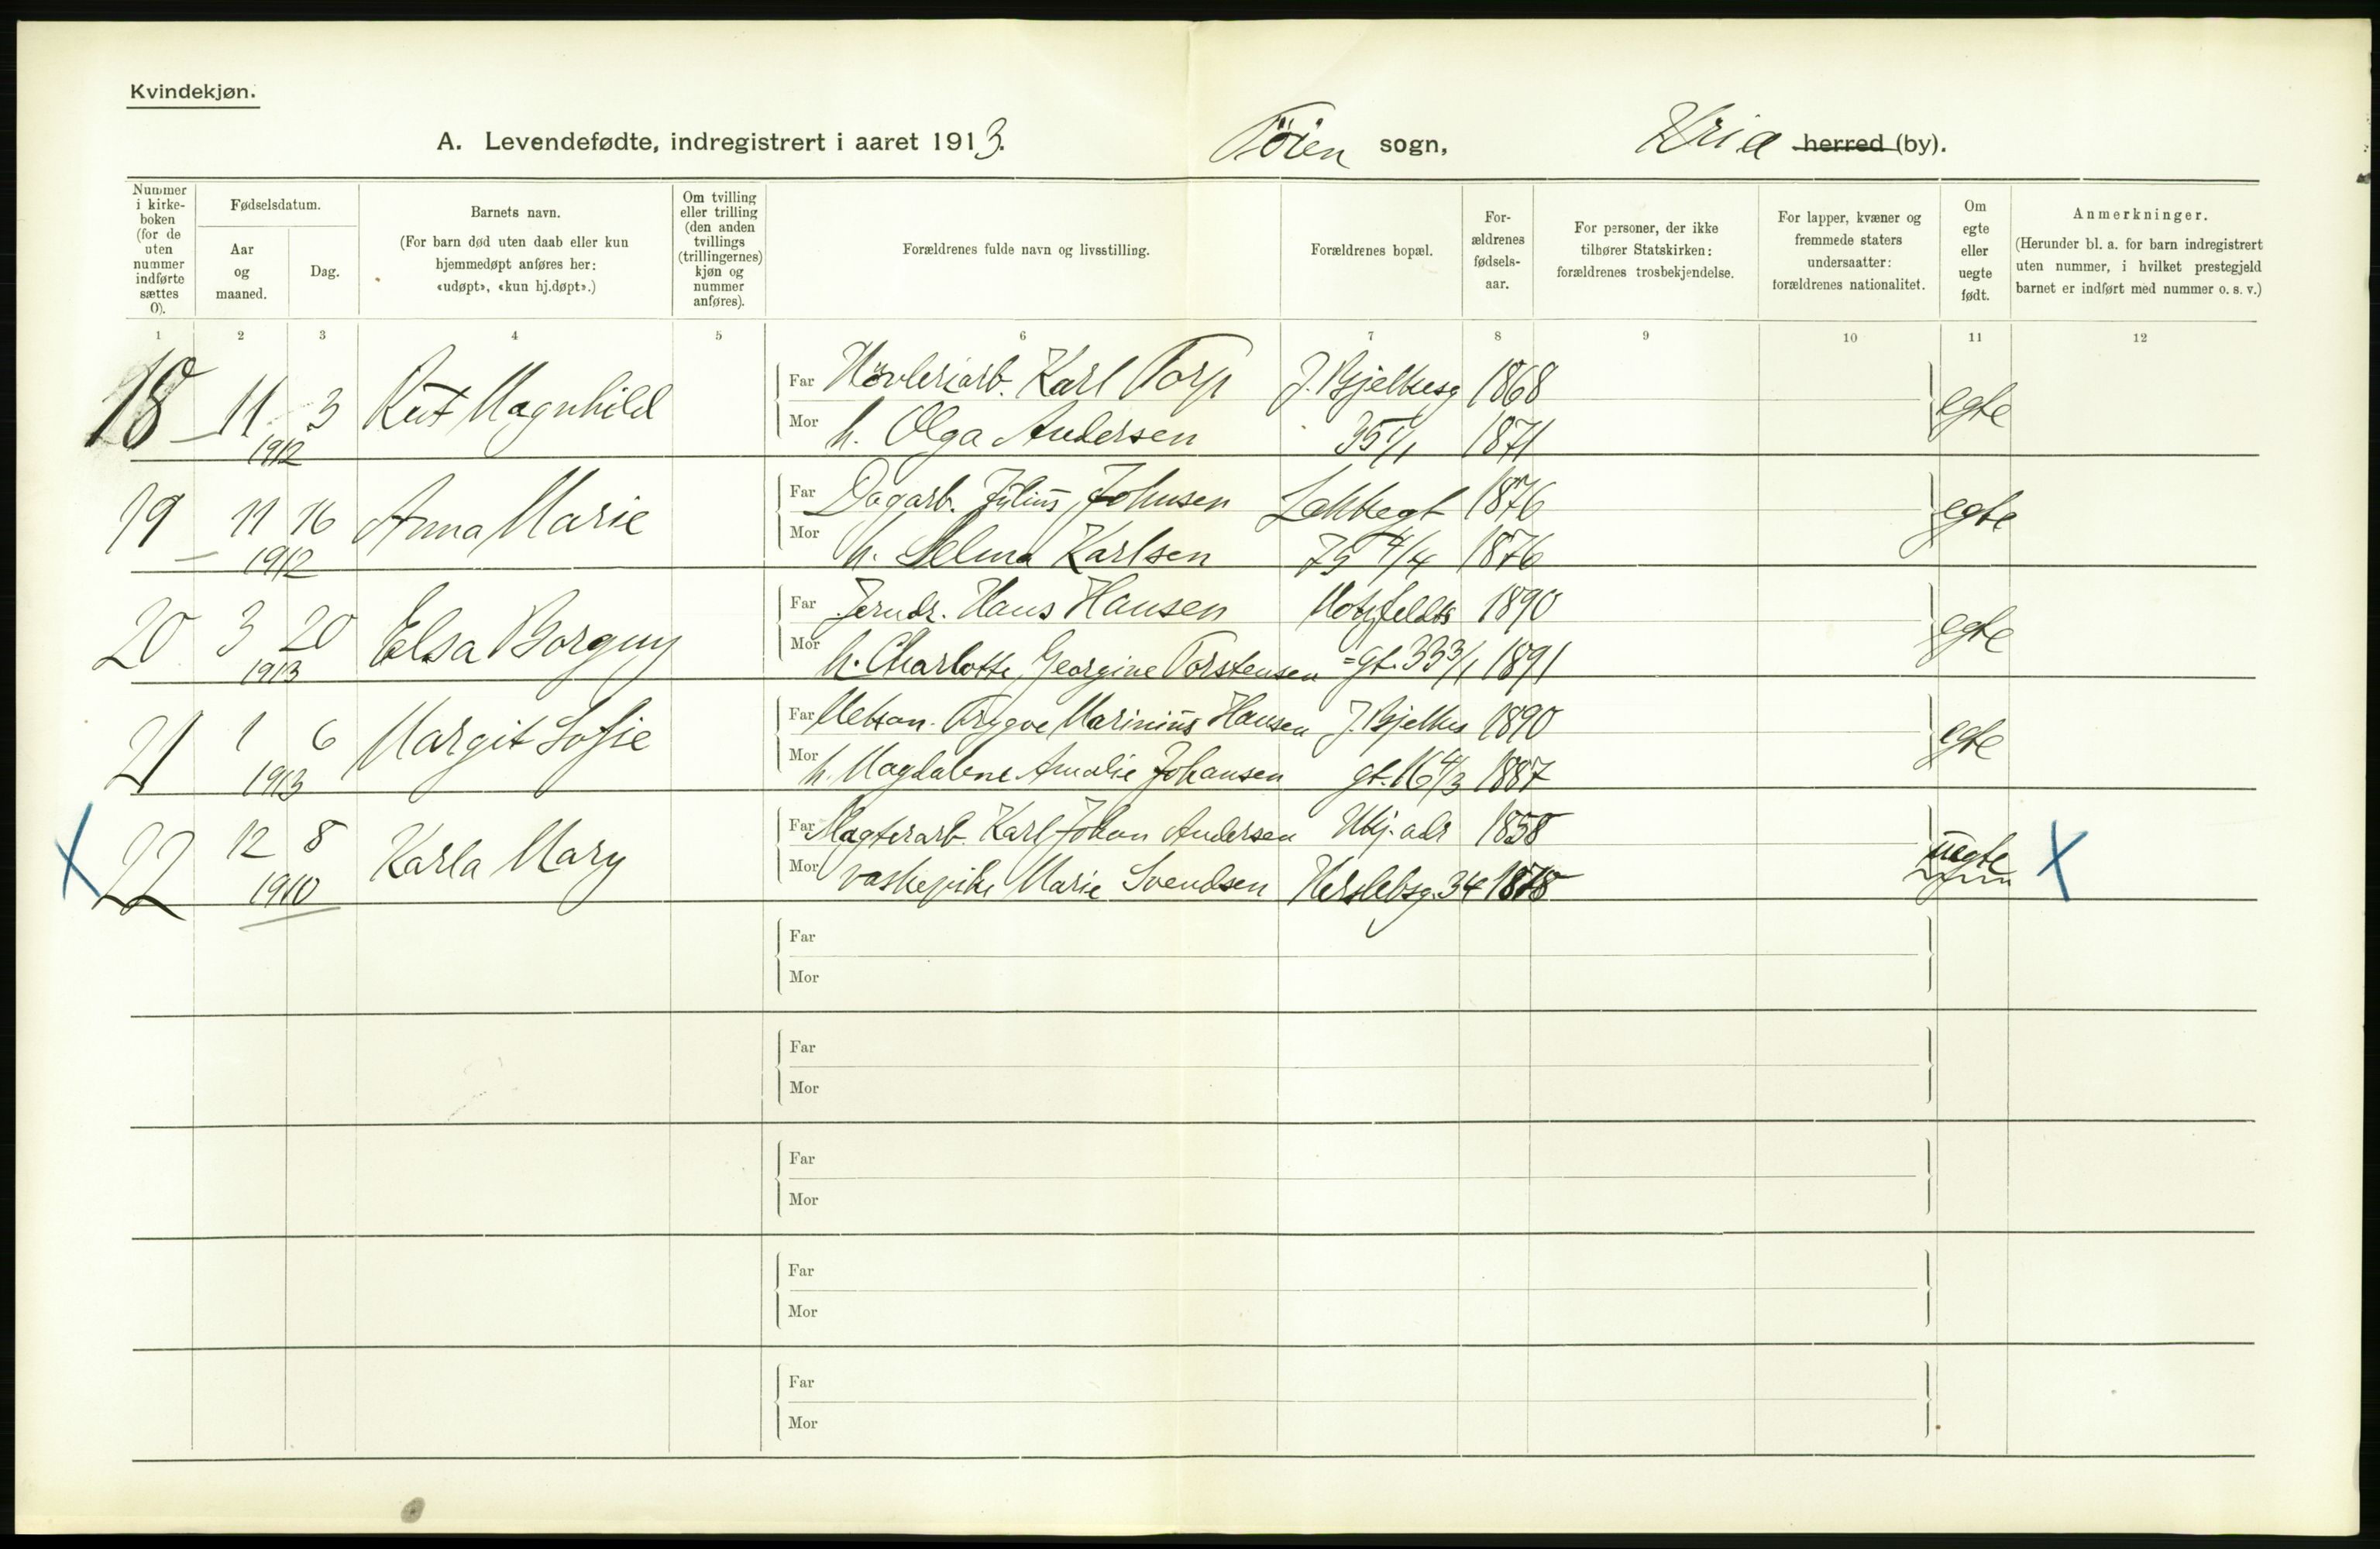 Kvindekjøn.
A. Levendefødte, indregistrert i aaret 1913. Töien sogn, Kria herred (by).
Nummer i kirke-boken (for de uten nummer indførte sættes 0).
Fødselsdatum.
Aar og maaned.
Dag.
Barnets navn.
(For barn død uten daab eller kun hjemmedøpt anføres her: «udøpt», «kun hj.døpt».)
Om tvilling eller trilling (den anden tvillings (trillingernes) kjøn og nummer anføres).
Forældrenes fulde navn og livsstilling.
Forældrenes bopæl.
For-ældrenes fødsels-aar.
For personer, der ikke tilhører Statskirken: forældrenes trosbekjendelse.
For lapper, kvæner og fremmede staters undersaatter: forældrenes nationalitet.
Om egte eller uegte født.
Anmerkninger.
(Herunder bl. a. for barn indregistrert uten nummer, i hvilket prestegjeld barnet er indført med nummer o. s. v.)
1 2 3 4 5 6 7 8 9 10 11 12
18 11 3 Rut Magnhild Far Hövleriarb. Karl Torp J. Bjelkesg 1868 egte
1912 Mor h. Olga Andersen 35 1/1 1871
19 11 16 Anna Marie Far Dagarb. Julius Johnsen 1876 egte
1912 Mor h. Selma Karlsen 75 4/4 1876
20 3 20 Elsa Borgny Far Jerndr. Hans Hansen Motzfeldts 1890 egte
1913 Mor h. Charlotte Georgine Torstensen =gt. 33 3/1 1891
21 1 6 Margit Sofie Far Trygve Marinius Hansen J. Bjelkes 1890 egte
1913 Mor h. Magdalene Amalie Johansen gt. 16 4/3 1887
X 22 12 8 Karla Mary Far Slagterarb. Karl Johan Andersen Ubj. adr 1858 uegte X
1910 Mor vaskepike Marie Svendsen Herslebsg. 34 1878
Far
Mor
Far
Mor
Far
Mor
Far
Mor
Far
Mor